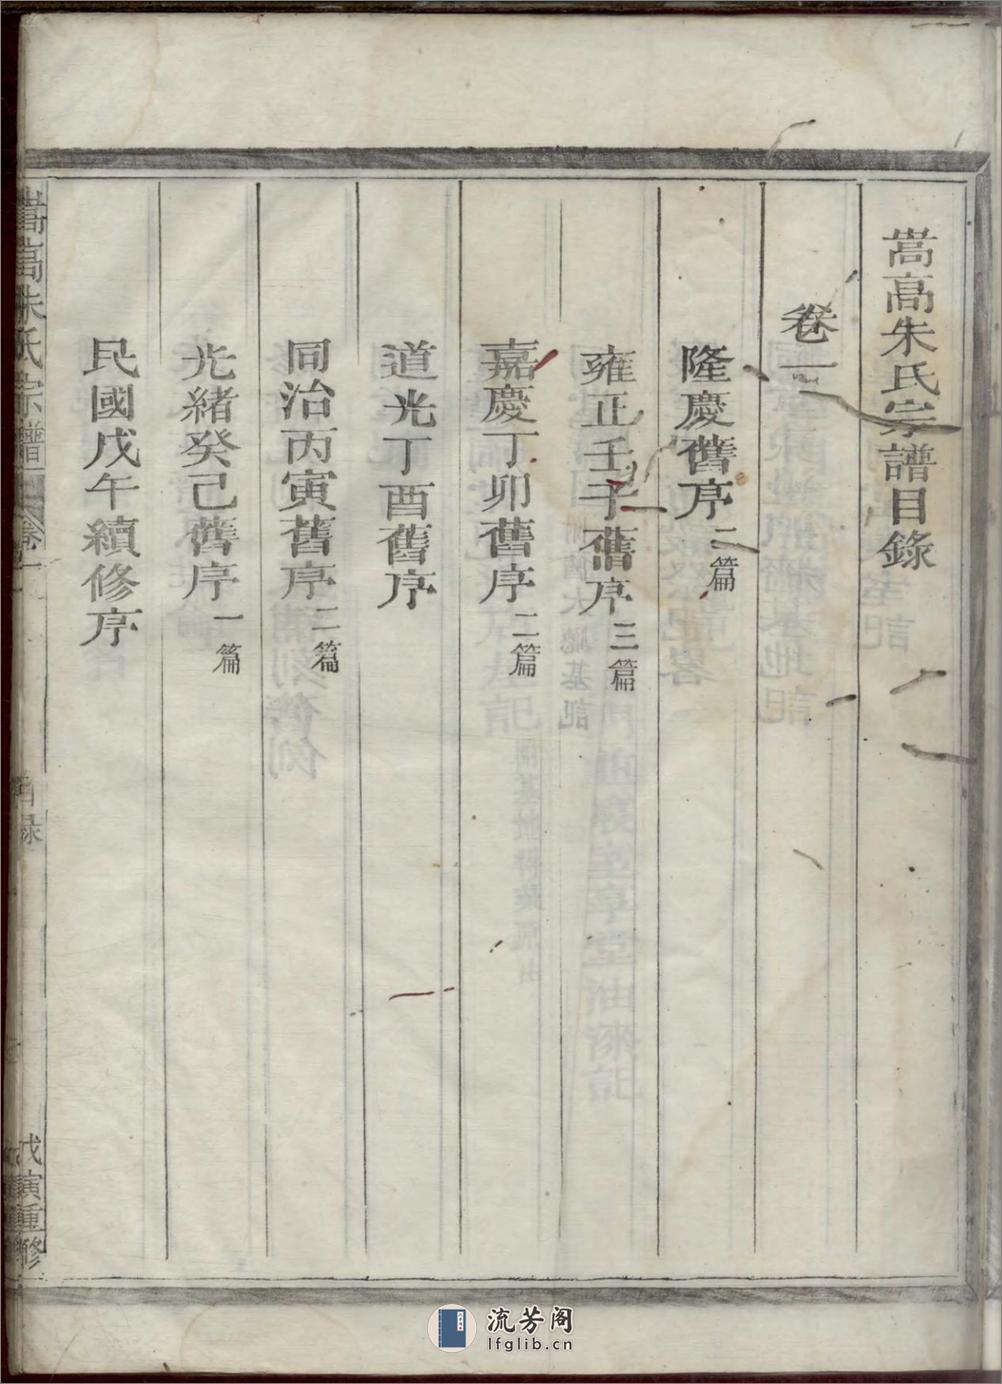 嵩高朱氏宗譜目錄
卷一
隆慶舊序二篇
雍正壬子舊序三篇
嘉慶丁卯舊序二篇
道光丁酉舊序
同治丙寅舊序二篇
光緒癸己舊序一篇
民國戊午續修序
嵩高朱氏宗譜 卷一 目錄 戊寅重修
流芳阁
lfglib.cn